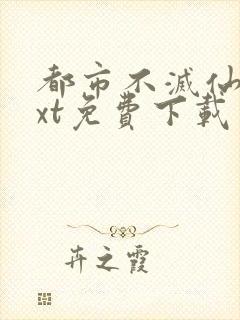 都市不滅仙
xt免費下載
卉之霞